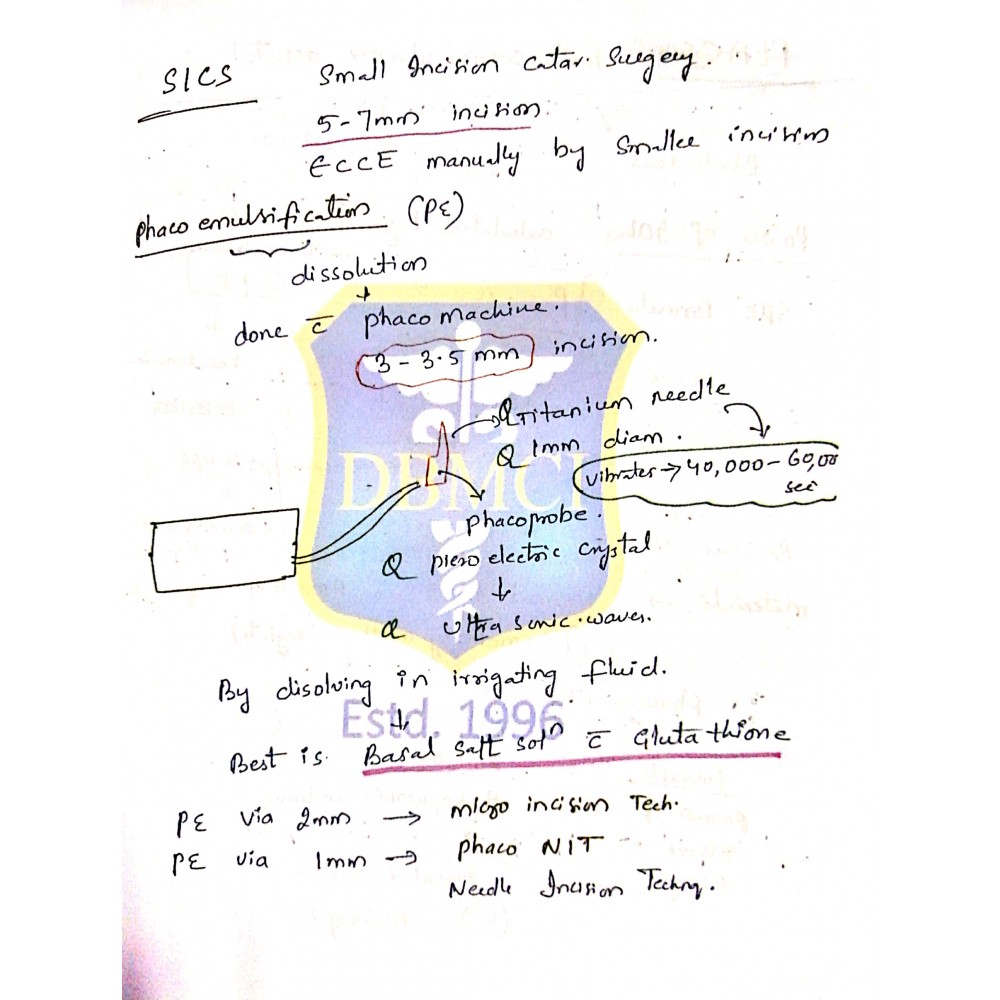 SICS Small Incision Catar. Surgery.
5-7mm incision.
ECCE manually by Smaller incision
phaco emulsification (PE)
dissolution
done c̄ phaco machine.
3 - 3.5 mm incision.
Q Titanium needle
Q 1mm diam.
vibrates → 40,000 - 60,00
sec
DBMCI
phacoprobe.
Q piezo electric crystal
↓
Q Ultra sonic waves.
By disolving in irrigating fluid.
Estd. 1996
↓
Best is Basal Salt solⁿ c̄ Glutathione
PE via 2mm → micro incision Tech.
PE via 1mm → phaco NIT
Needle Incision Techng.